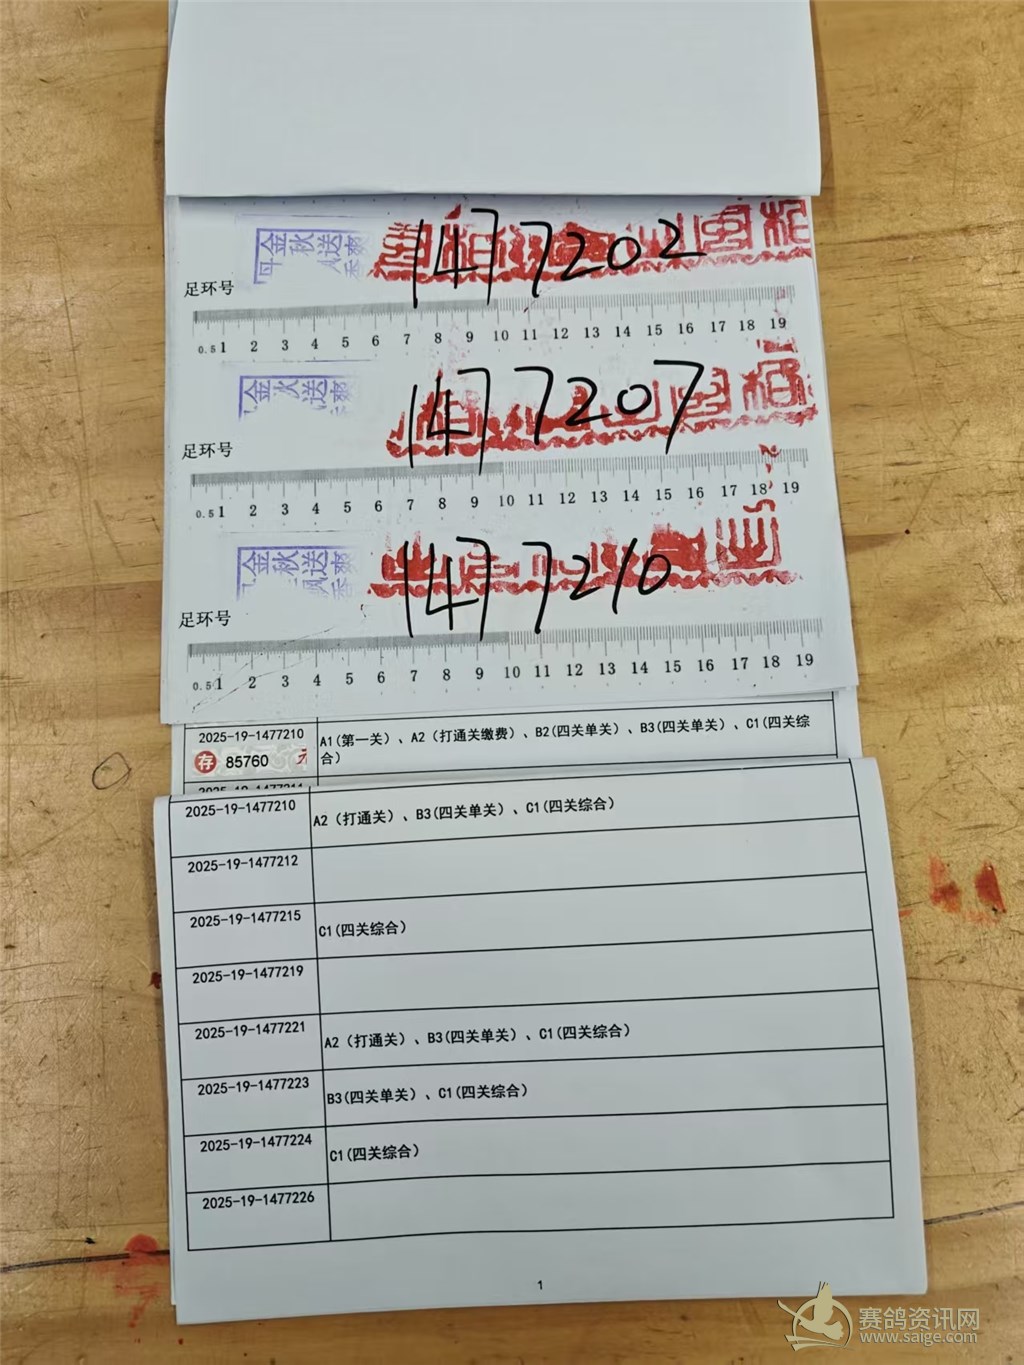 金秋送爽
1477202
足环号
0.5 1 2 3 4 5 6 7 8 9 10 11 12 13 14 15 16 17 18 19
金 送
1477207
足环号
0.5 1 2 3 4 5 6 7 8 9 10 11 12 13 14 15 16 17 18 19
金秋送爽
飘香
1477210
足环号
0.5 1 2 3 4 5 6 7 8 9 10 11 12 13 14 15 16 17 18 19
2025-19-1477210 A1(第一关)、A2(打通关缴费)、B2(四关单关)、B3(四关单关)、C1(四关综
存 85760 合)
2025-19-1477210 A2(打通关)、B3(四关单关)、C1(四关综合)
2025-19-1477212
2025-19-1477215 C1(四关综合)
2025-19-1477219
2025-19-1477221 A2(打通关)、B3(四关单关)、C1(四关综合)
2025-19-1477223 B3(四关单关)、C1(四关综合)
2025-19-1477224 C1(四关综合)
2025-19-1477226
1
赛鸽资讯网
www.saige.com